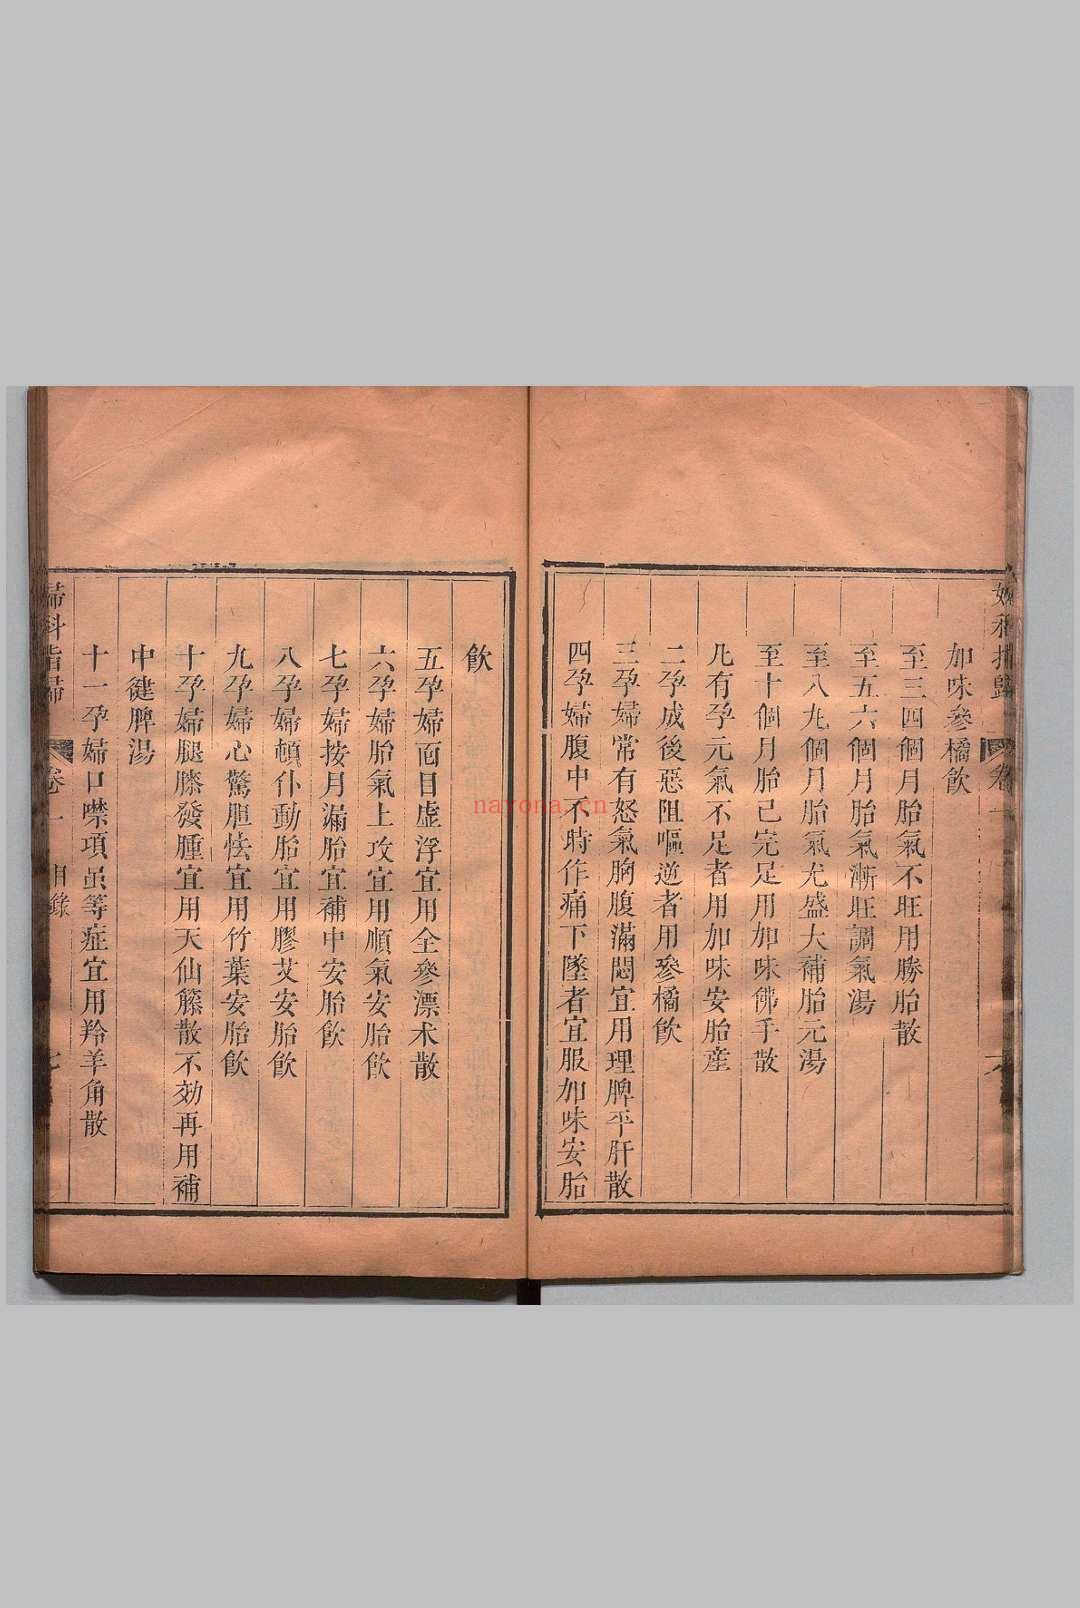 加味參橘飲
至三四個月胎氣不旺用勝胎散
至五六個月胎氣漸旺調氣湯
至八九個月胎氣尤盛大補胎元湯
至十個月胎已完足用加味佛手散
凡有孕元氣不足者用加味安胎產
二孕成後惡阻嘔逆者用參橘飲
三孕婦常有怒氣胸腹滿悶宜用理脾平肝散
四孕婦腹中不時作痛下墜者宜服加味安胎
飲
五孕婦面目虛浮宜用全參漂术散
六孕婦胎氣上攻宜用順氣安胎飲
七孕婦按月漏胎宜補中安胎飲
八孕婦頓仆動胎宜用膠艾安胎飲
九孕婦心驚胆怯宜用竹葉安胎飲
十孕婦腿膝發腫宜用天仙籐散不効再用補
中健脾湯
十一孕婦口噤項虽等症宜用羚羊角散
婦科指歸 卷一 目錄 七
nayona.cn